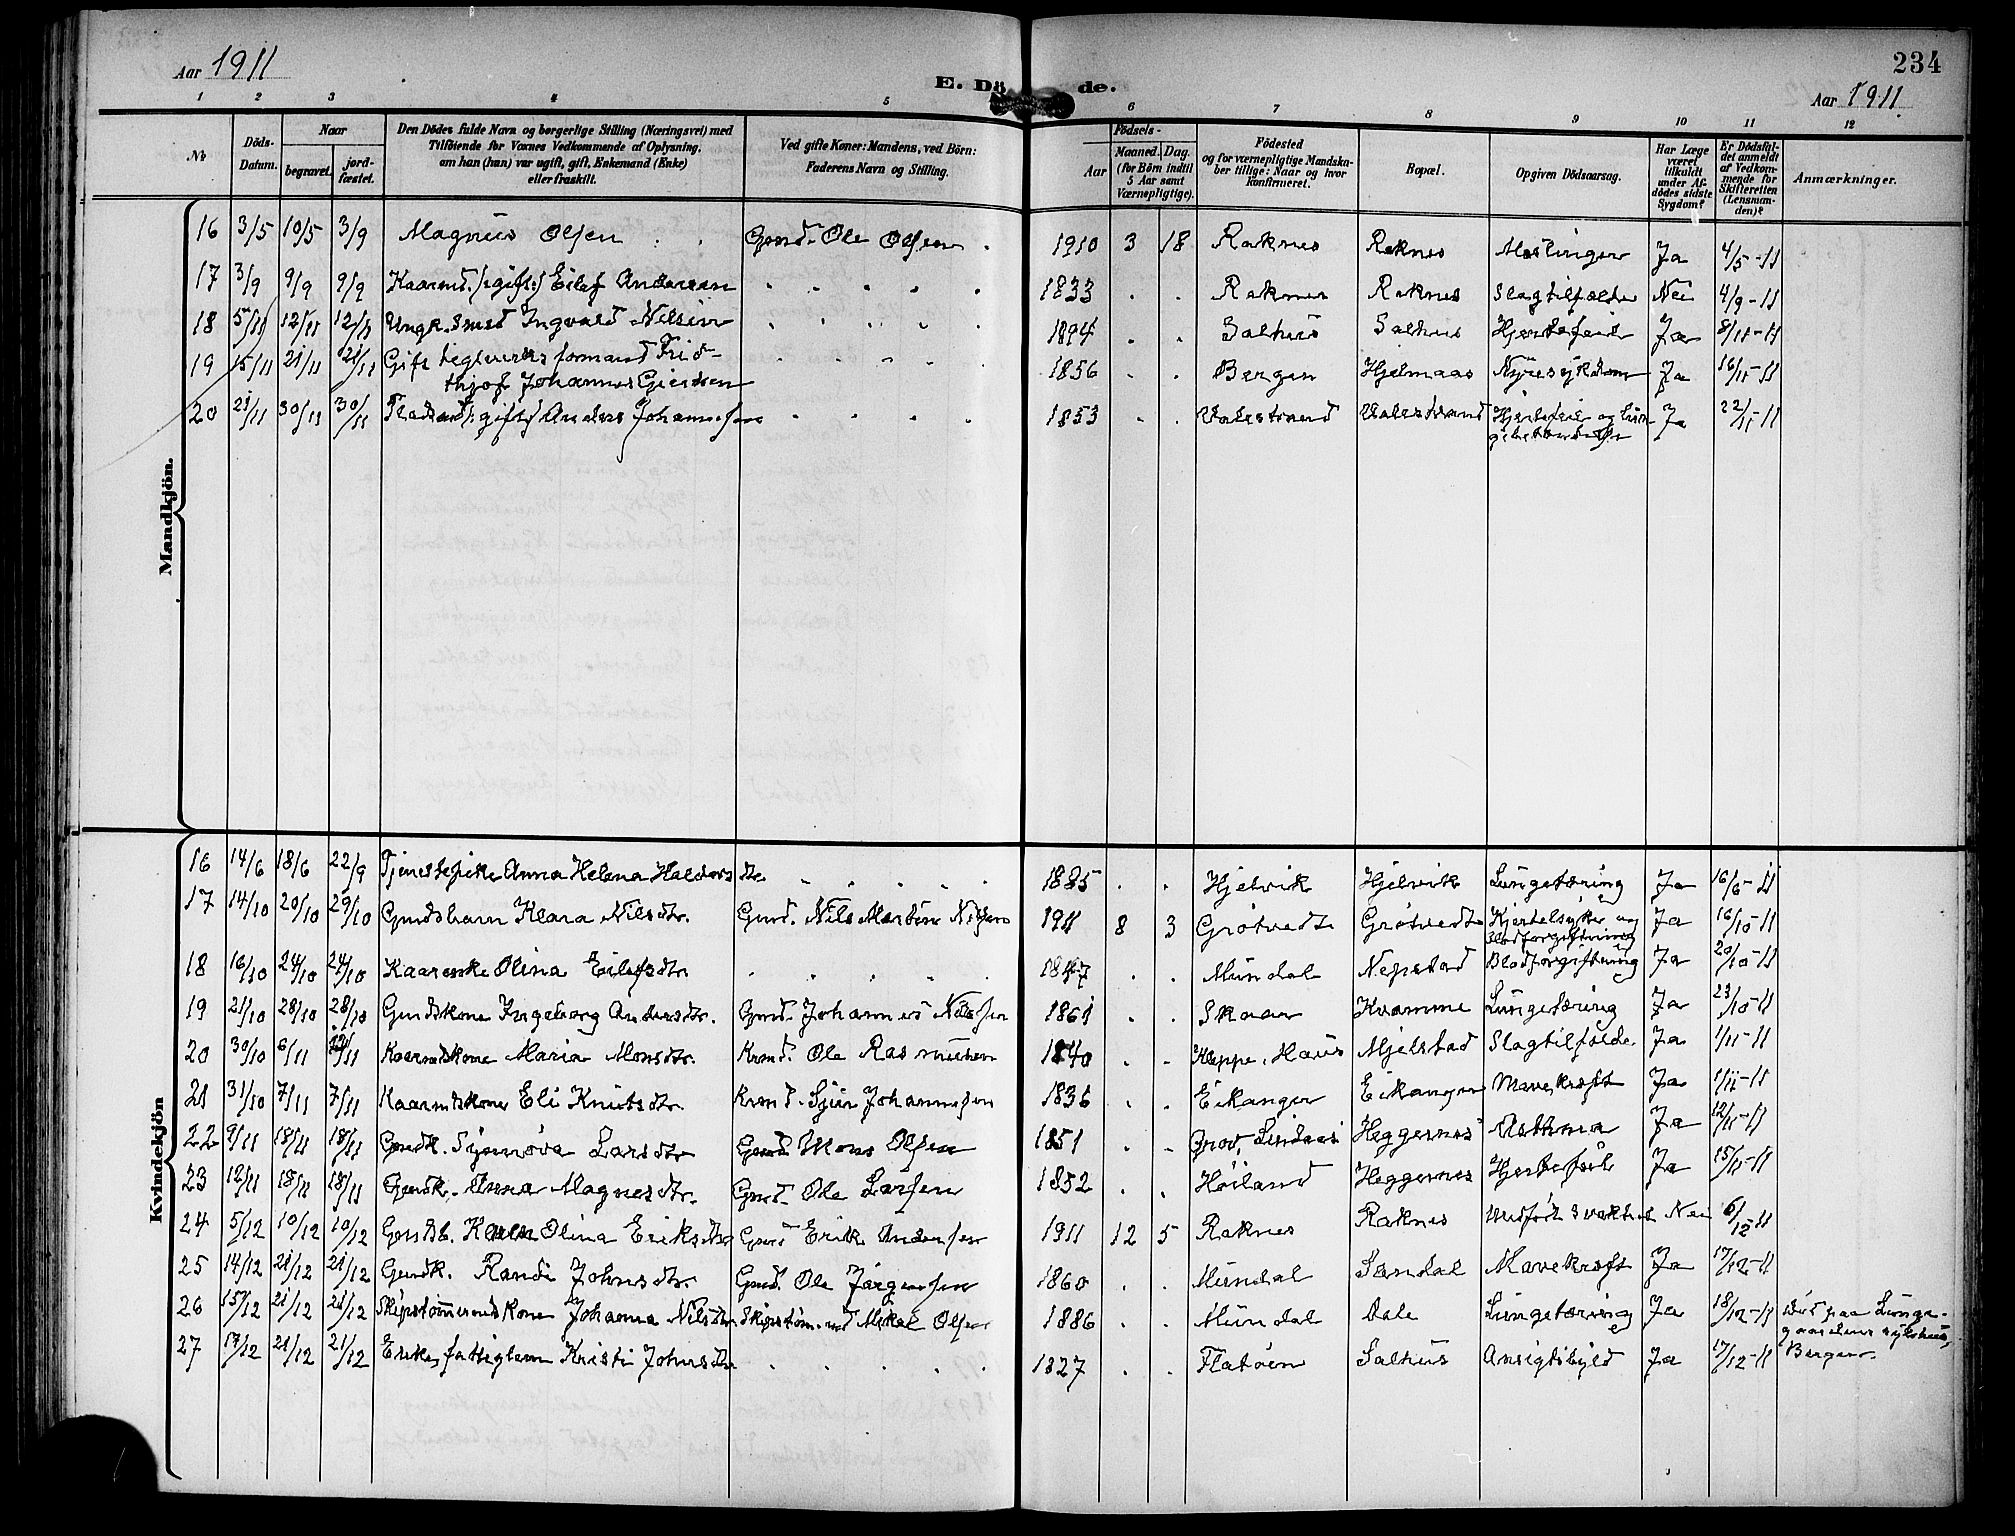 234
Aar 1911
E. Döde.
Aar 1911
1 2 3 4 5 6 7 8 9 10 11 12
No
Döds-Datum.
Naar
begravet.
jord-fæstet.
Den Dödes fulde Navn og borgerlige Stilling (Næringsvei) med
Tilföiende for Voxnes Vedkommende af Oplysning,
om han (hun) var ugift, gift, Enkemand (Enke)
eller fraskilt.
Ved gifte Koner: Mandens, ved Börn:
Faderens Navn og Stilling.
Födsels-
Aar
Maaned. Dag.
(for Börn indtil
5 Aar samt
Værnepligtige).
Födested
og for værnepligtige Mandska-
ber tillige: Naar og hvor
konfirmeret.
Bopæl.
Opgiven Dödsaarsag.
Har Læge
været
tilkaldt
under Af-
dödes sidste
Sygdom?
Er Dödsfal-
det anmeldt
af Vedkom-
mende for
Skifteretten
(Lensman-
den)?
Anmærkninger.
Mandkjön.
16 3/5 10/5 3/9 Magnus Olsen Gmd. Ole Olsen 1910 3 18 Raknes Raknes Meslinger Ja 4/5-11
17 3/9 9/9 9/9 Kaarmd. /:gift:/ Eilef Andersen 1833 Raknes Raknes Slagtilfælde Nei 4/9-11
18 5/11 12/11 12/11 Ungk. smed Ingvald Nilsen 1894 Salhus Salhus Hjertefeil Ja 8/11-11
19 15/11 21/11 21/11 Gift teglverksformand Frid-
thjof Johannes Gjertsen 1856 Bergen Hjelmaas Nyresykdom Ja 16/11-11
20 21/11 30/11 30/11 /:gift:/ Anders Johannesen 1853 Valestrand Valestrand Hjertefeil og Lun-
gebetændelse Ja 22/11-11
Kvindekjön
16 14/6 18/6 22/9 Tjenestepike Anna Helena Haldorsdtr. 1885 Hjelvik Hjelvik Lungetæring Ja 16/6-11
17 14/10 20/10 29/10 Gmdsbarn Klara Nilsdtr. Gmd. Nils Martin Nilsen 1911 8 3 Grötvedt Grötvedt Kjertelsyke og
Blodforgiftning Ja 16/10-11
18 16/10 24/10 24/10 Kaarenke Olina Eilefsdtr. 1847 Mundal Nepstad Blodforgiftning Ja 20/10-11
19 21/10 28/10 28/10 Gmdskone Ingeborg Andersdtr. Gmd. Johannes Nilssen 1861 Skaar Kvamme Lungetæring Ja 23/10-11
20 30/10 6/11 /11 Kaarmdskone Maria Monsdtr. Krmd. Ole Rasmussen 1840 Kleppe, Haus Mjelstad Slagtilfælde Ja 1/11-11
21 31/10 7/11 7/11 Kaarmdskone Eli Knutsdtr. Krmd. Sjur Johannesen 1836 Eikanger Eikanger Mavekræft Ja 1/11-11
22 9/11 18/11 18/11 Gmdk. Synnöva Larsdtr Gmd Mons Olsen 1851 Lindaas Heggernes Asthma Ja 12/11-11
23 12/11 18/11 18/11 Gmdk. Anna Magnesdtr. Gmd. Ole Larsen 1852 Höiland Heggernes Hjertefeil Ja 15/11-11
24 5/12 10/12 10/12 Gmdsb. Karen Olina Eriksdtr Gmd Erik Andersen 1911 12 5 Raknes Raknes Medfödt svakhed Nei 6/12-11
25 14/12 21/12 21/12 Gmdk. Randi Johnsdtr. Gmd. Ole Jörgensen 1860 Mundal Sandal Mavekræft Ja 17/12-11
26 15/12 21/12 21/12 Skipstömmermdskone Johanna Nilsdtr Skipstöm.md Mikal Olsen 1886 Mundal Dale Lungetæring Ja 18/12-11 Död paa Lunge-
gaardens sykehus,
Bergen.
27 17/12 21/12 21/12 Enke, fattiglem Kristi Johnsdtr 1827 Flatöen Salhus Ansigtsbyld Ja 17/12-11